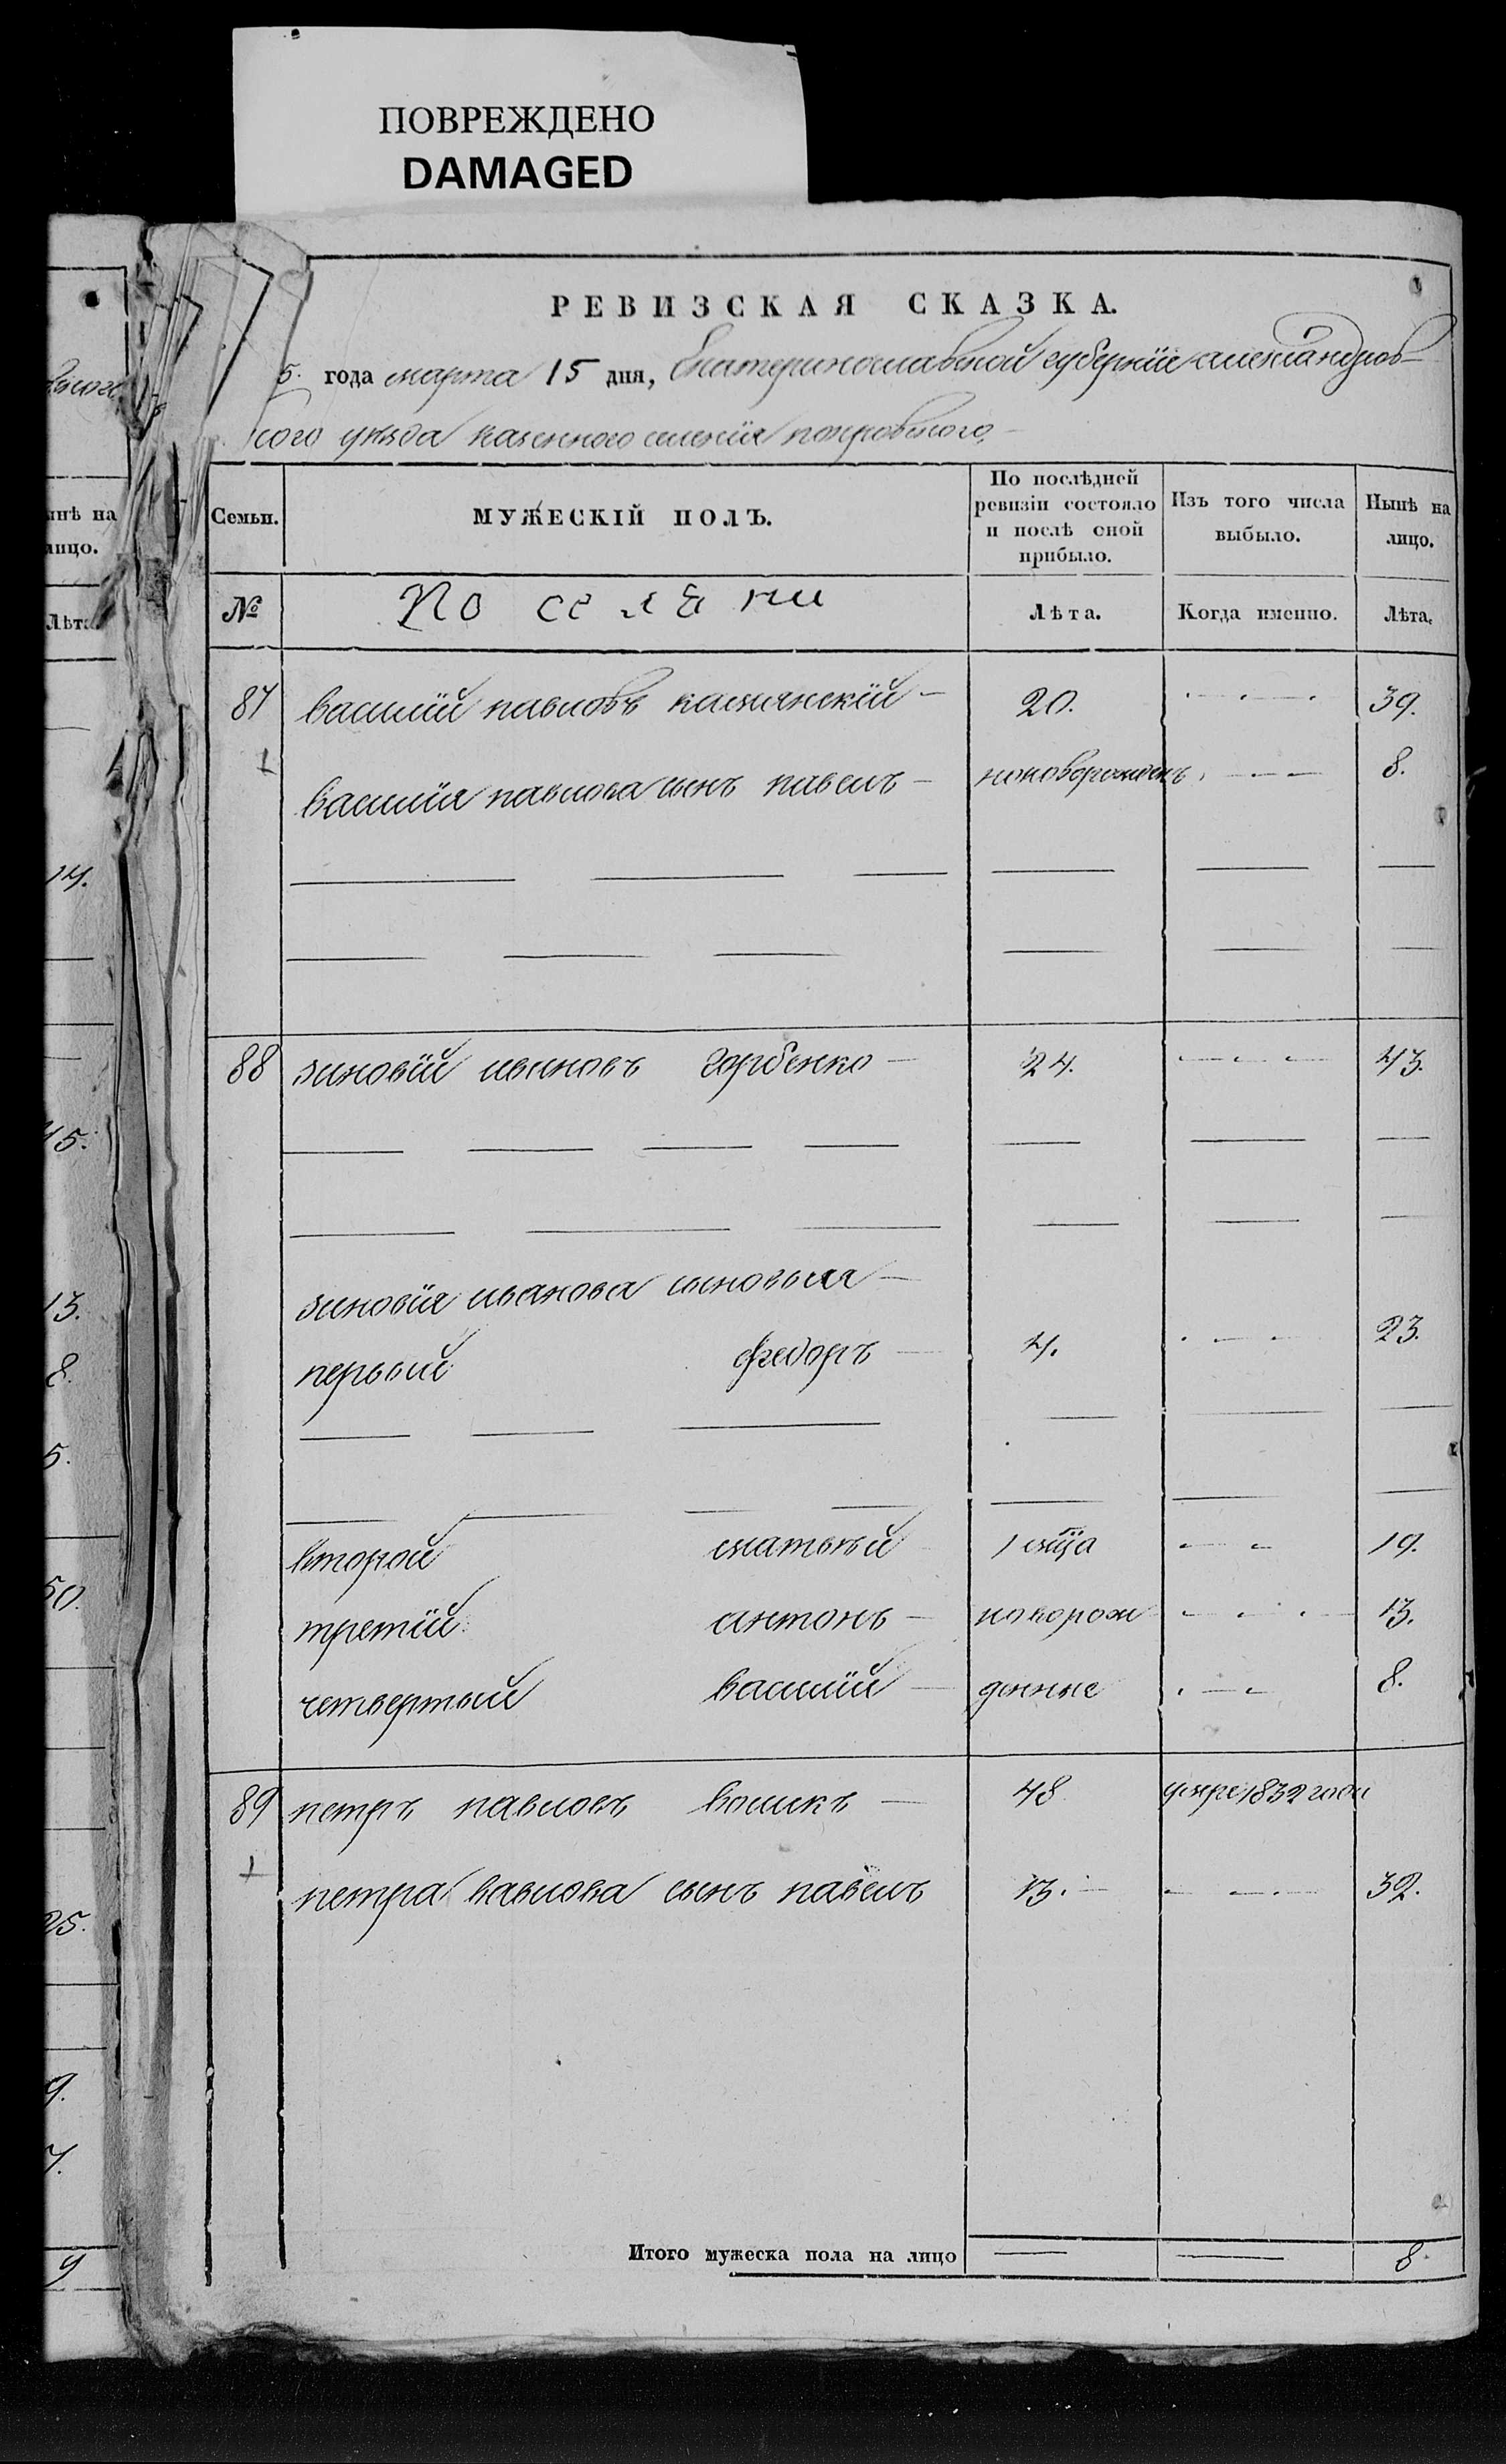 ПОВРЕЖДЕНО
DAMAGED
РЕВИЗСКАЯ СКАЗКА.
5. года марта 15 дня, Екатеринославской губернїи александров-
ского уѣзда казенного селенїя покровского
Семьи.
МУЖЕСКІЙ ПОЛЪ.
По послѣдней ревизіи состояло и послѣ оной прибыло.
Изъ того числа выбыло.
Нынѣ на лицо.
№
Поселяни
Лѣта.
Когда именно.
Лѣта.
87 василїй павловъ 20. 39.
василїя павлова сынъ павелъ новорожденъ 8.
88 зиновїй ивановъ горбенко 24. 43.
зиновїя иванова сыновья
первый федоръ 4. 23.
второй матвѣй 1 мца 19.
третїй антонъ новорож 13.
четвертый василїй денные 8.
89 петръ павловъ воликъ 48 умре 1832 года
петра павлова сынъ павелъ 13. 32.
Итого мужеска пола на лицо 8.
нѣ на
лицо.
Лѣта
14.
45.
13.
8.
5.
50.
25.
9.
7.
9